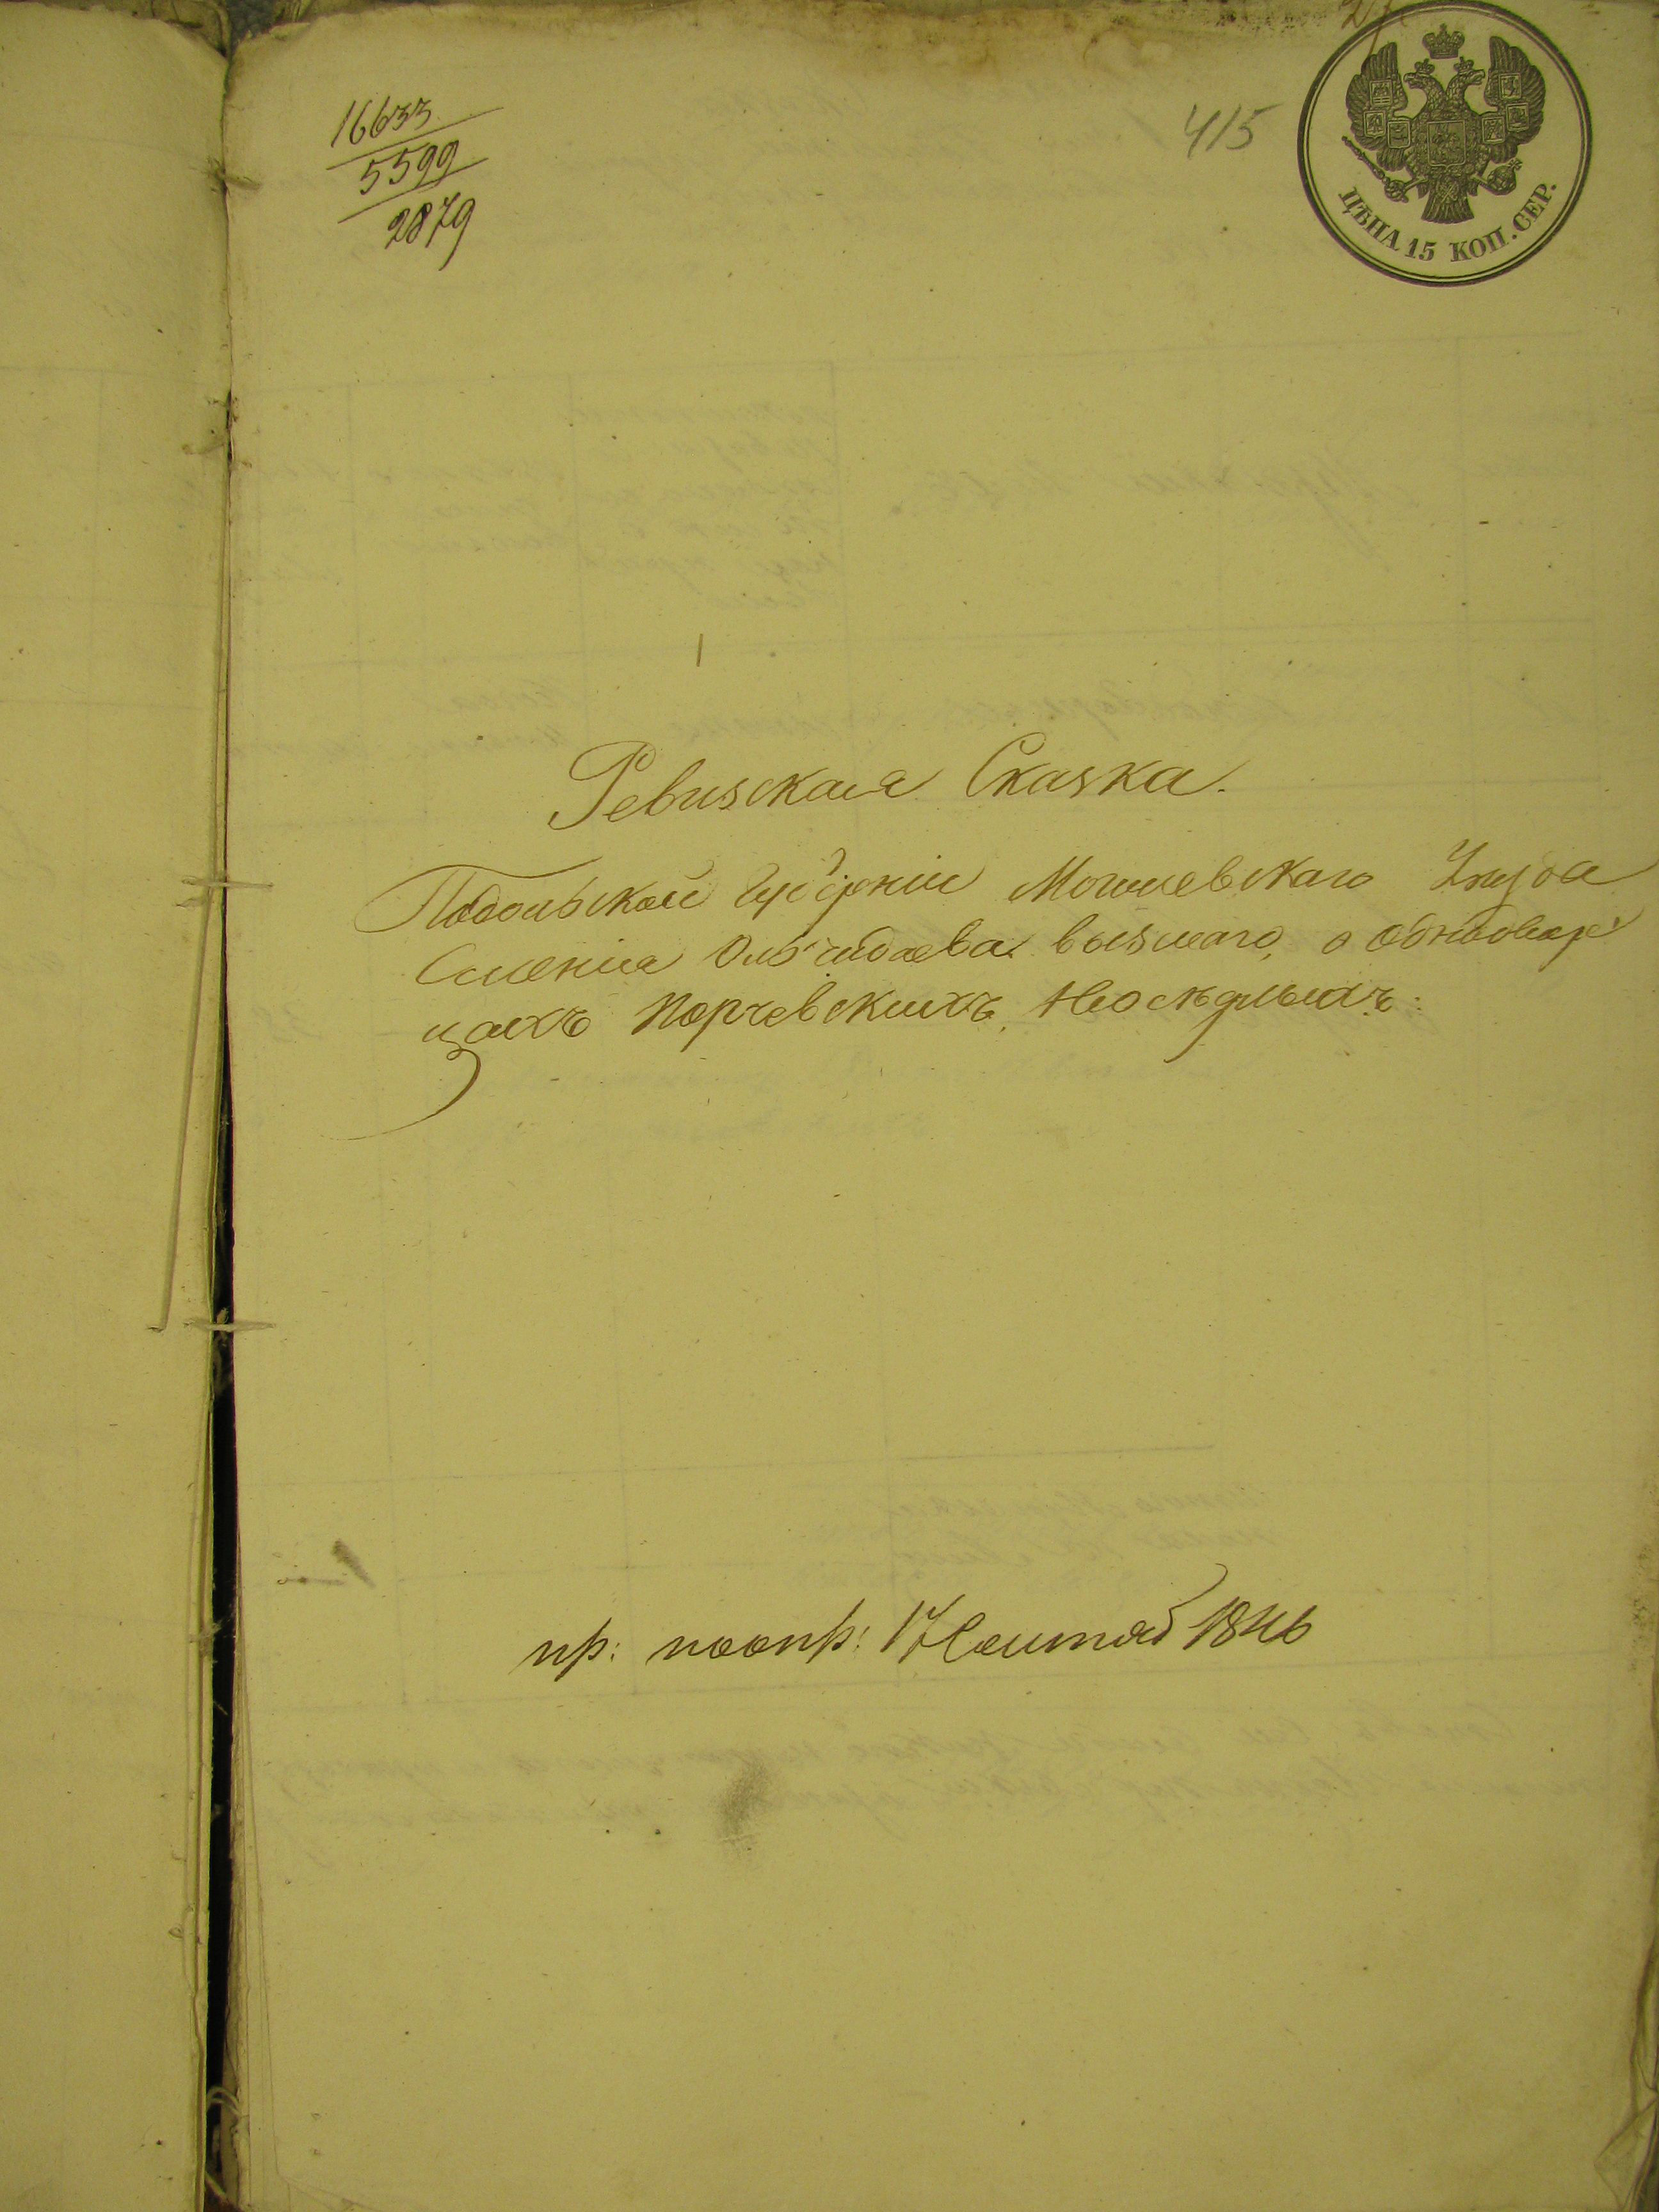 16633
5599
2879
415
ЦѢНА 15 КОП. СЕР.
Ревизская Сказка.
Подольской Губерніи Могилевскаго Уѣзда
Селенія Ольчидаева вызшаго, о однодвор
цахъ Порчевскихъ, Неосѣдлыхъ:
пр: 1846